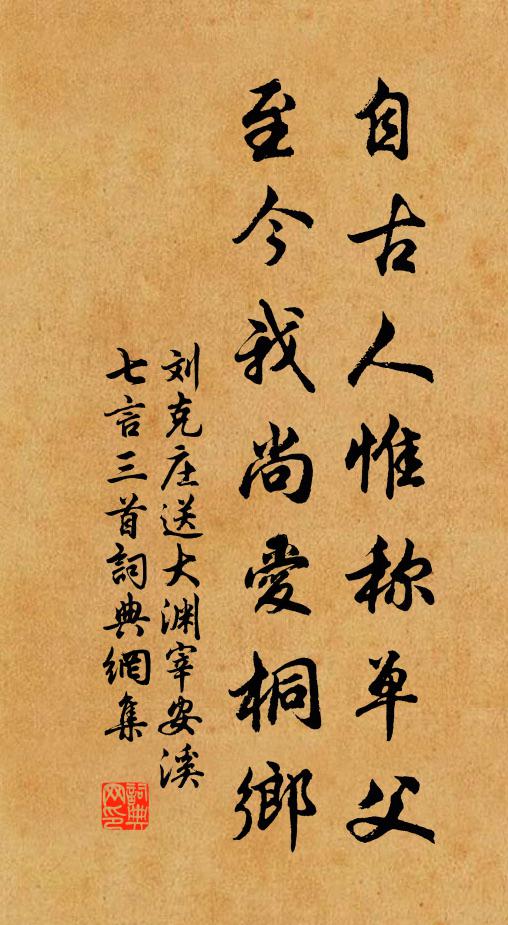 自古人惟称单父
至今我尚愛桐鄉
刘克庄送大渊宰安溪
七言三首詞典網集
詞典
网印